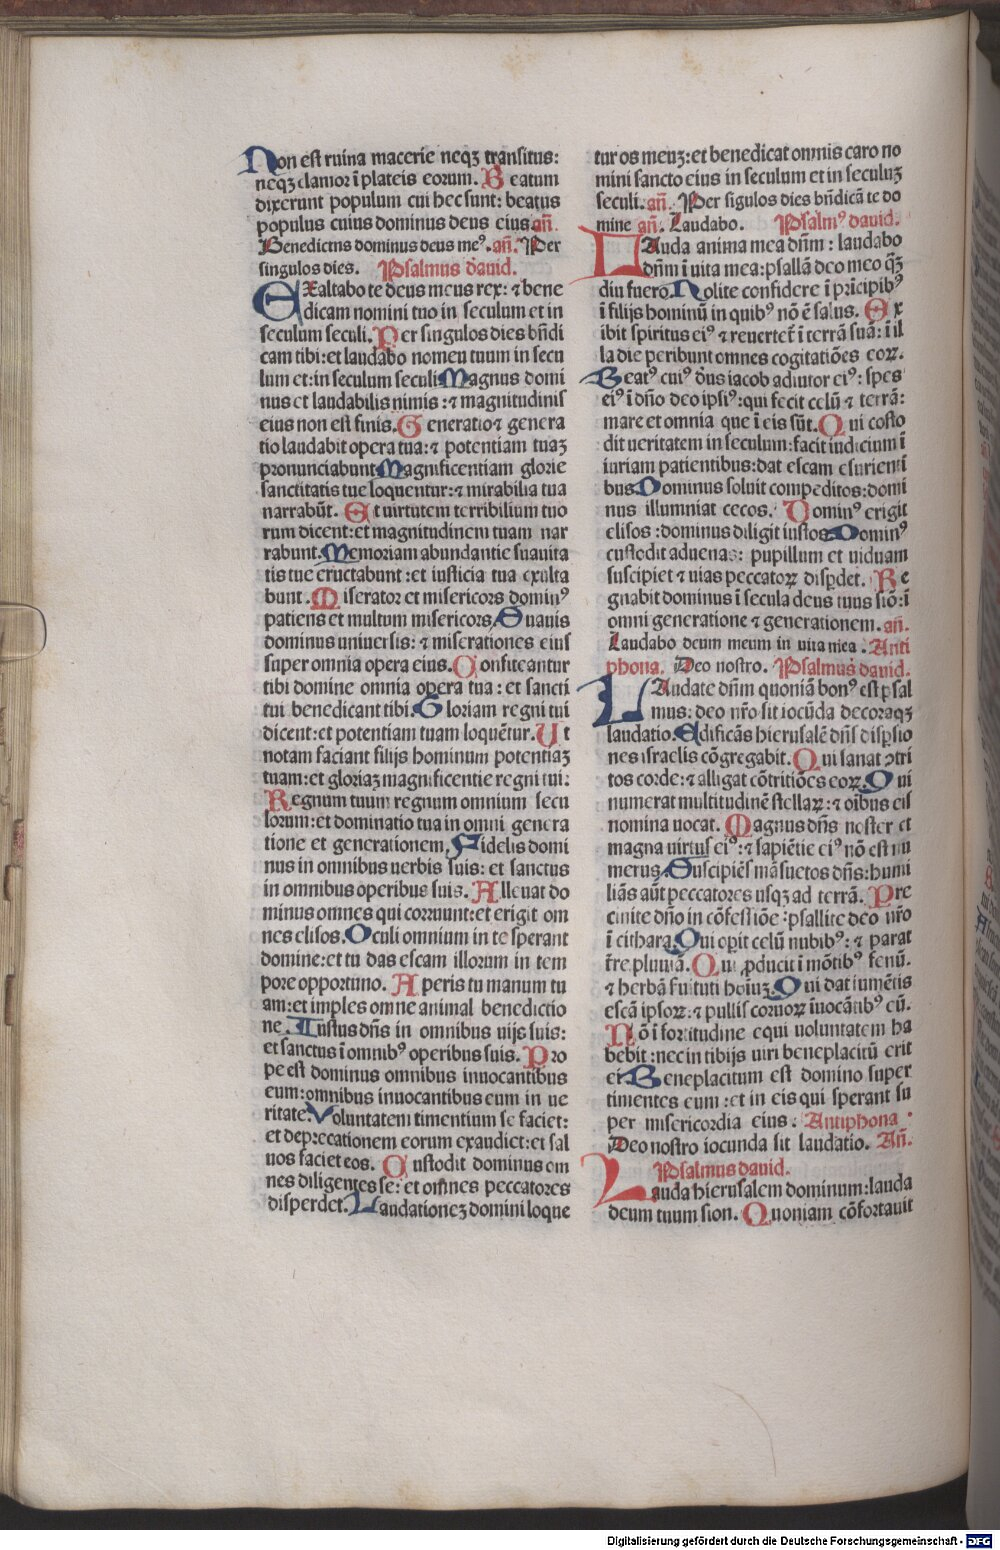 Non est ruina macerie neqꝫ transitus:
neqꝫ clamor ī plateis eorum. Beatum
dixerunt populum cui hec sunt: beatus
populus cuius dominus deus eius añ.
Benedictus dominus deus meꝰ. añ. Per
singulos dies. Psalmus dauid.
EXaltabo te deus meus rex: ⁊ bene
dicam nomini tuo in seculum et in
seculum seculi. Per singulos dies bñdi
cam tibi: et laudabo nomen tuum in secu
lum et: in seculum seculi Magnus domi
nus et laudabilis nimis: ⁊ magnitudinis
eius non est finis. Generatio ⁊ genera
tio laudabit opera tua: ⁊ potentiam tuaꝫ
pronunciabunt Magnificentiam glorie
sanctitatis tue loquentur: ⁊ mirabilia tua
narrabūt. Et uirtutem terribilium tuo
rum dicent: et magnitudinem tuam nar
rabunt. Memoriam abundantie suauita
tis tue eructabunt: et iusticia tua exulta
bunt. Miserator et misericors dominꝰ
patiens et multum misericors. Suauis
dominus uniuersis: ⁊ miserationes eius
super omnia opera eius. Confiteantur
tibi domine omnia opera tua: et sancti
tui benedicant tibi. Gloriam regni tui
dicent: et potentiam tuam loquētur. Ut
notam faciant filijs hominum potentiaꝫ
tuam: et gloriaꝫ magnificentie regni tui:
Regnum tuum regnum omnium secu
lorum: et dominatio tua in omni genera
tione et generationem. Fidelis domi
nus in omnibus uerbis suis: et sanctus
in omnibus operibus suis. Alleuat do
minus omnes qui corruunt: et erigit om
nes elisos. Oculi omnium in te sperant
domine: et tu das escam illorum in tem
pore opportuno. Aperis tu manum tu
am: et imples omne animal benedictio
ne. Iustus dñs in omnibus uijs suis:
et sanctus ī omnibꝰ operibus suis. Pro
pe est dominus omnibus inuocantibus
eum: omnibus inuocantibus eum in ue
ritate. Voluntatem timentium se faciet:
et deprecationem eorum exaudiet: et sal
uos faciet eos. Custodit dominus om
nes diligentes se: et omnes peccatores
disperdet. Laudationeꝫ domini loque
tur os meuꝫ: et benedicat omnis caro no
mini sancto eius in seculum et in seculuꝫ
seculi. añ. Per sigulos dies bñdicā te do
mine añ. Laudabo. Psalmꝰ dauid.
LAuda anima mea dñm: laudabo
dñm ī uita mea: psallā deo meo qꝫ
diu fuero. Nolite confidere ī prīcipibꝰ
ī filijs hominū in quibꝰ nō ē salus. Ex
ibit spiritus eiꝰ ⁊ reuertet̄ ī terrā suā: ī il
la die peribunt omnes cogitatiōes eoꝝ.
Beatꝰ cuiꝰ dūs iacob adiutor eiꝰ: spes
eiꝰ ī dño deo ipsiꝰ: qui fecit celū ⁊ terrā:
mare et omnia que ī eis sūt. Qui custo
dit ueritatem in seculum: facit iudicium ī
iuriam patientibus: dat escam esurientī
bus Dominus soluit compeditos: domi
nus illumniat cecos. Dominꝰ erigit
elisos: dominus diligit iustos Dominꝰ
custodit aduenas: pupillum et uiduam
suscipiet ⁊ uias peccatoꝝ disꝑdet. Re
gnabit dominus ī secula deus tuus siō: ī
omni generatione ⁊ generationem. añ.
Laudabo deum meum in uita mea. Anti
phona. Deo nostro. Psalmus dauid.
LAudate dñm quoniā bonꝰ est psal
mus: deo nr̄o sit iocūda decoraqꝫ
laudatio. Edificās hierusalē dñs disꝑsio
nes israelis cōgregabit. Qui sanat ↄtri
tos corde: ⁊ alligat cōtritiōes eoꝝ. Qui
numerat multitudinē stellaꝝ: ⁊ oībus eis
nomina uocat. Magnus dñs noster et
magna uirtus eiꝰ: ⁊ sapiētie eiꝰ nō est nu
merus. Suscipiēs māsuetos dñs: humi
liās aūt peccatores usqꝫ ad terrā. Pre
cinite dño in cōfessiōe: psallite deo nr̄o
ī cithara. Qui oꝑit celū nubibꝰ: ⁊ parat
t̄re pluuiā. Qui ꝓducit ī mōtibꝰ fenū.
⁊ herbā seruituti hoīuꝫ. Qui dat iumētis
escā ipsoꝝ: ⁊ pullis coruoꝝ īuocātibꝰ eū.
Nō ī fortitudine equi uoluntatem ha
bebit: nec in tibijs uiri beneplacitū erit
ei. Beneplacitum est domino super
timentes eum: et in eis qui sperant su
per misericordia eius. Antiphona
Deo nostro iocunda sit laudatio. Añ.
Psalmus dauid.
Lauda hierusalem dominum: lauda
deum tuum sion. Quoniam cōfortauit
Digitalisierung gefördert durch die Deutsche Forschungsgemeinschaft - DFG